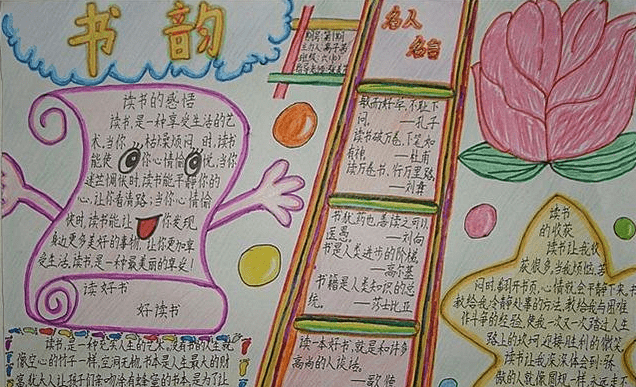 书韵
读书的感悟
读书,是一种享受生活的艺
术。当你枯燥烦闷时,读书
能使你心情愉悦,当你
迷茫惆怅时,读书能平静你的
心,让你看清路;当你心情愉
快时,读书能让你发现
身边更多美好的事物,让你更加享
受生活。读书,是一种最美丽的享受!
读好书
好读书
名人
名言
敏而好学,不耻下
问。 —孔子
读书破万卷,下笔如
有神 —杜甫
读万卷书,行万里路
—刘彝
书犹药也,善读之可以
医愚。 —刘向
书是人类进步的阶梯。
—高尔基
书籍是人类知识的总
统。 —莎士比亚
读一本好书,就是和许多
高尚的人谈话。
—歌德
读书
的收获
读书让我收
获很多,当我烦恼、苦
闷时,翻开书页,心情就会平静下来,书
教给我冷静处事的方法,教给我与困难
作斗争的经验,使我一次又一次踏过人生
路上的坎坷,迎接胜利的微笑
读书让我深深体会到:张